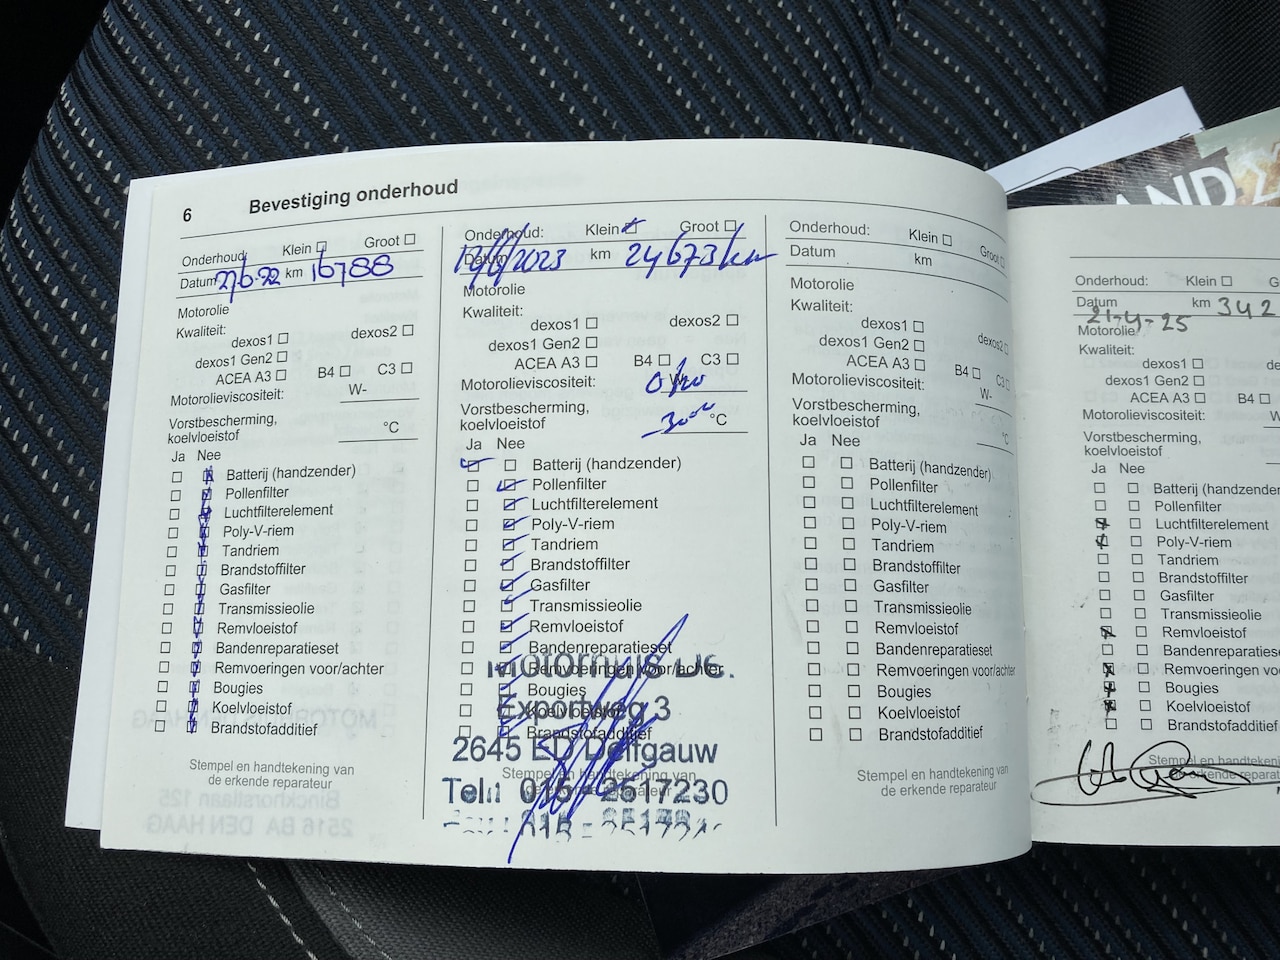 6 Bevestiging onderhoud
Onderhoud: Klein ☐ Groot ☐
Datum 27-6-22 km 16788
Motorolie
Kwaliteit:
dexos1 ☐ dexos2 ☐
dexos1 Gen2 ☐
ACEA A3 ☐ B4 ☐ C3 ☐
Motorolieviscositeit: W-
Vorstbescherming,
koelvloeistof °C
Ja Nee
Batterij (handzender)
Pollenfilter
Luchtfilterelement
Poly-V-riem
Tandriem
Brandstoffilter
Gasfilter
Transmissieolie
Remvloeistof
Bandenreparatieset
Remvoeringen voor/achter
Bougies
Koelvloeistof
Brandstofadditief
Stempel en handtekening van
de erkende reparateur
Onderhoud: Klein Groot ☐
Datum 2023 km 24673 km
Motorolie
Kwaliteit:
dexos1 ☐ dexos2 ☐
dexos1 Gen2 ☐
ACEA A3 ☐ B4 ☐ C3 ☐
Motorolieviscositeit: W-
Vorstbescherming,
koelvloeistof °C
Ja Nee
Batterij (handzender)
Pollenfilter
Luchtfilterelement
Poly-V-riem
Tandriem
Brandstoffilter
Gasfilter
Transmissieolie
Remvloeistof
Bandenreparatieset
Remvoeringen voor/achter
Bougies
Koelvloeistof
Brandstofadditief
Stempel en handtekening van
de erkende reparateur
Motorhuis
Exportweg 3
2645 ED Delfgauw
Tel.: 015 - 2517230
Onderhoud: Klein ☐ Groot
Datum km
Motorolie
Kwaliteit:
dexos1 ☐ dexos2 ☐
dexos1 Gen2 ☐
ACEA A3 ☐ B4 ☐ C3 ☐
Motorolieviscositeit: W-
Vorstbescherming,
koelvloeistof °C
Ja Nee
Batterij (handzender)
Pollenfilter
Luchtfilterelement
Poly-V-riem
Tandriem
Brandstoffilter
Gasfilter
Transmissieolie
Remvloeistof
Bandenreparatieset
Remvoeringen voor/achter
Bougies
Koelvloeistof
Brandstofadditief
Stempel en handtekening van
de erkende reparateur
Onderhoud: Klein ☐ G
Datum 21-4-25 km 342
Motorolie
Kwaliteit:
dexos1 ☐
dexos1 Gen2 ☐
ACEA A3 ☐ B4 ☐
Motorolieviscositeit: W
Vorstbescherming,
koelvloeistof
Ja Nee
Batterij (handzender
Pollenfilter
Luchtfilterelement
Poly-V-riem
Tandriem
Brandstoffilter
Gasfilter
Transmissieolie
Remvloeistof
Bandenreparatiese
Remvoeringen vo
Bougies
Koelvloeistof
Brandstofadditief
Stempel en handtekening
de erkende reparat
AND